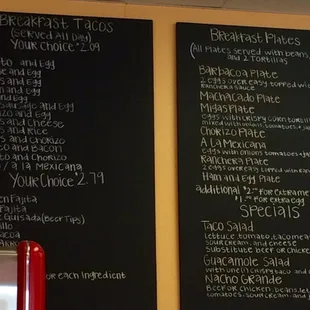 Breakfast Tacos
(Served All Day)
Your Choice $2.09
and Egg
and Egg
and Egg
and Egg
Sausage and Egg
and Egg
and Cheese
and Rice
and Chorizo
and Bacon
and Chorizo
a la Mexicana
Your Choice $2.79
Fajita
Fajita
Guisada (Beer Tips)
for each Ingredient
Breakfast Plates
(All Plates served with beans,
and 2 Tortillas
Barbacoa Plate
2 eggs over easy topped wi
Ranchera sauce
Machacado Plate
Migas Plate
eggs with crispy corn tortill
mixed with
Chorizo Plate
A La Mexicana
Eggs with onion tomatoes + ja
Ranchera Plate
2 eggs over easy topped with Ran
Ham and Egg Plate
additional for extra me
for extra egg
Specials
Taco Salad
lettuce, tomato, taco mea
sour cream, and cheese
substitute beef or chicken
Guacamole Salad
with one crispy taco and c
Nacho Grande
Beef or chicken, beans, let
tomatoes, sour cream and j